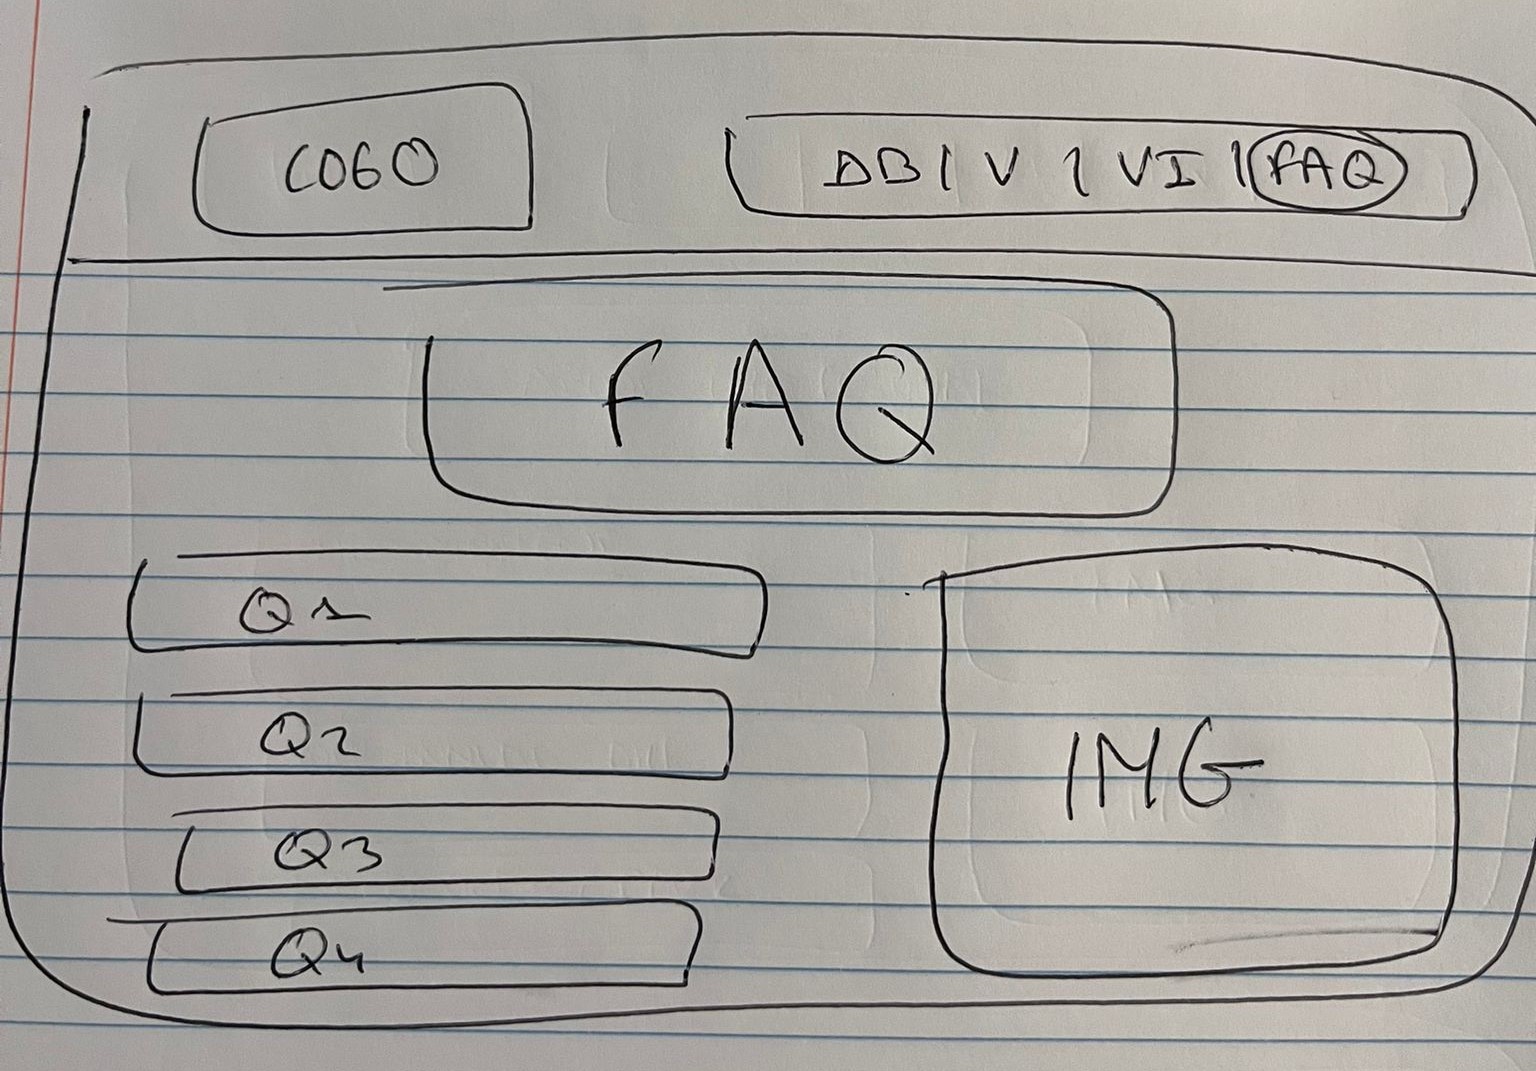 LOGO
DB | V | VI | FAQ
FAQ
Q1
Q2
Q3
Q4
IMG